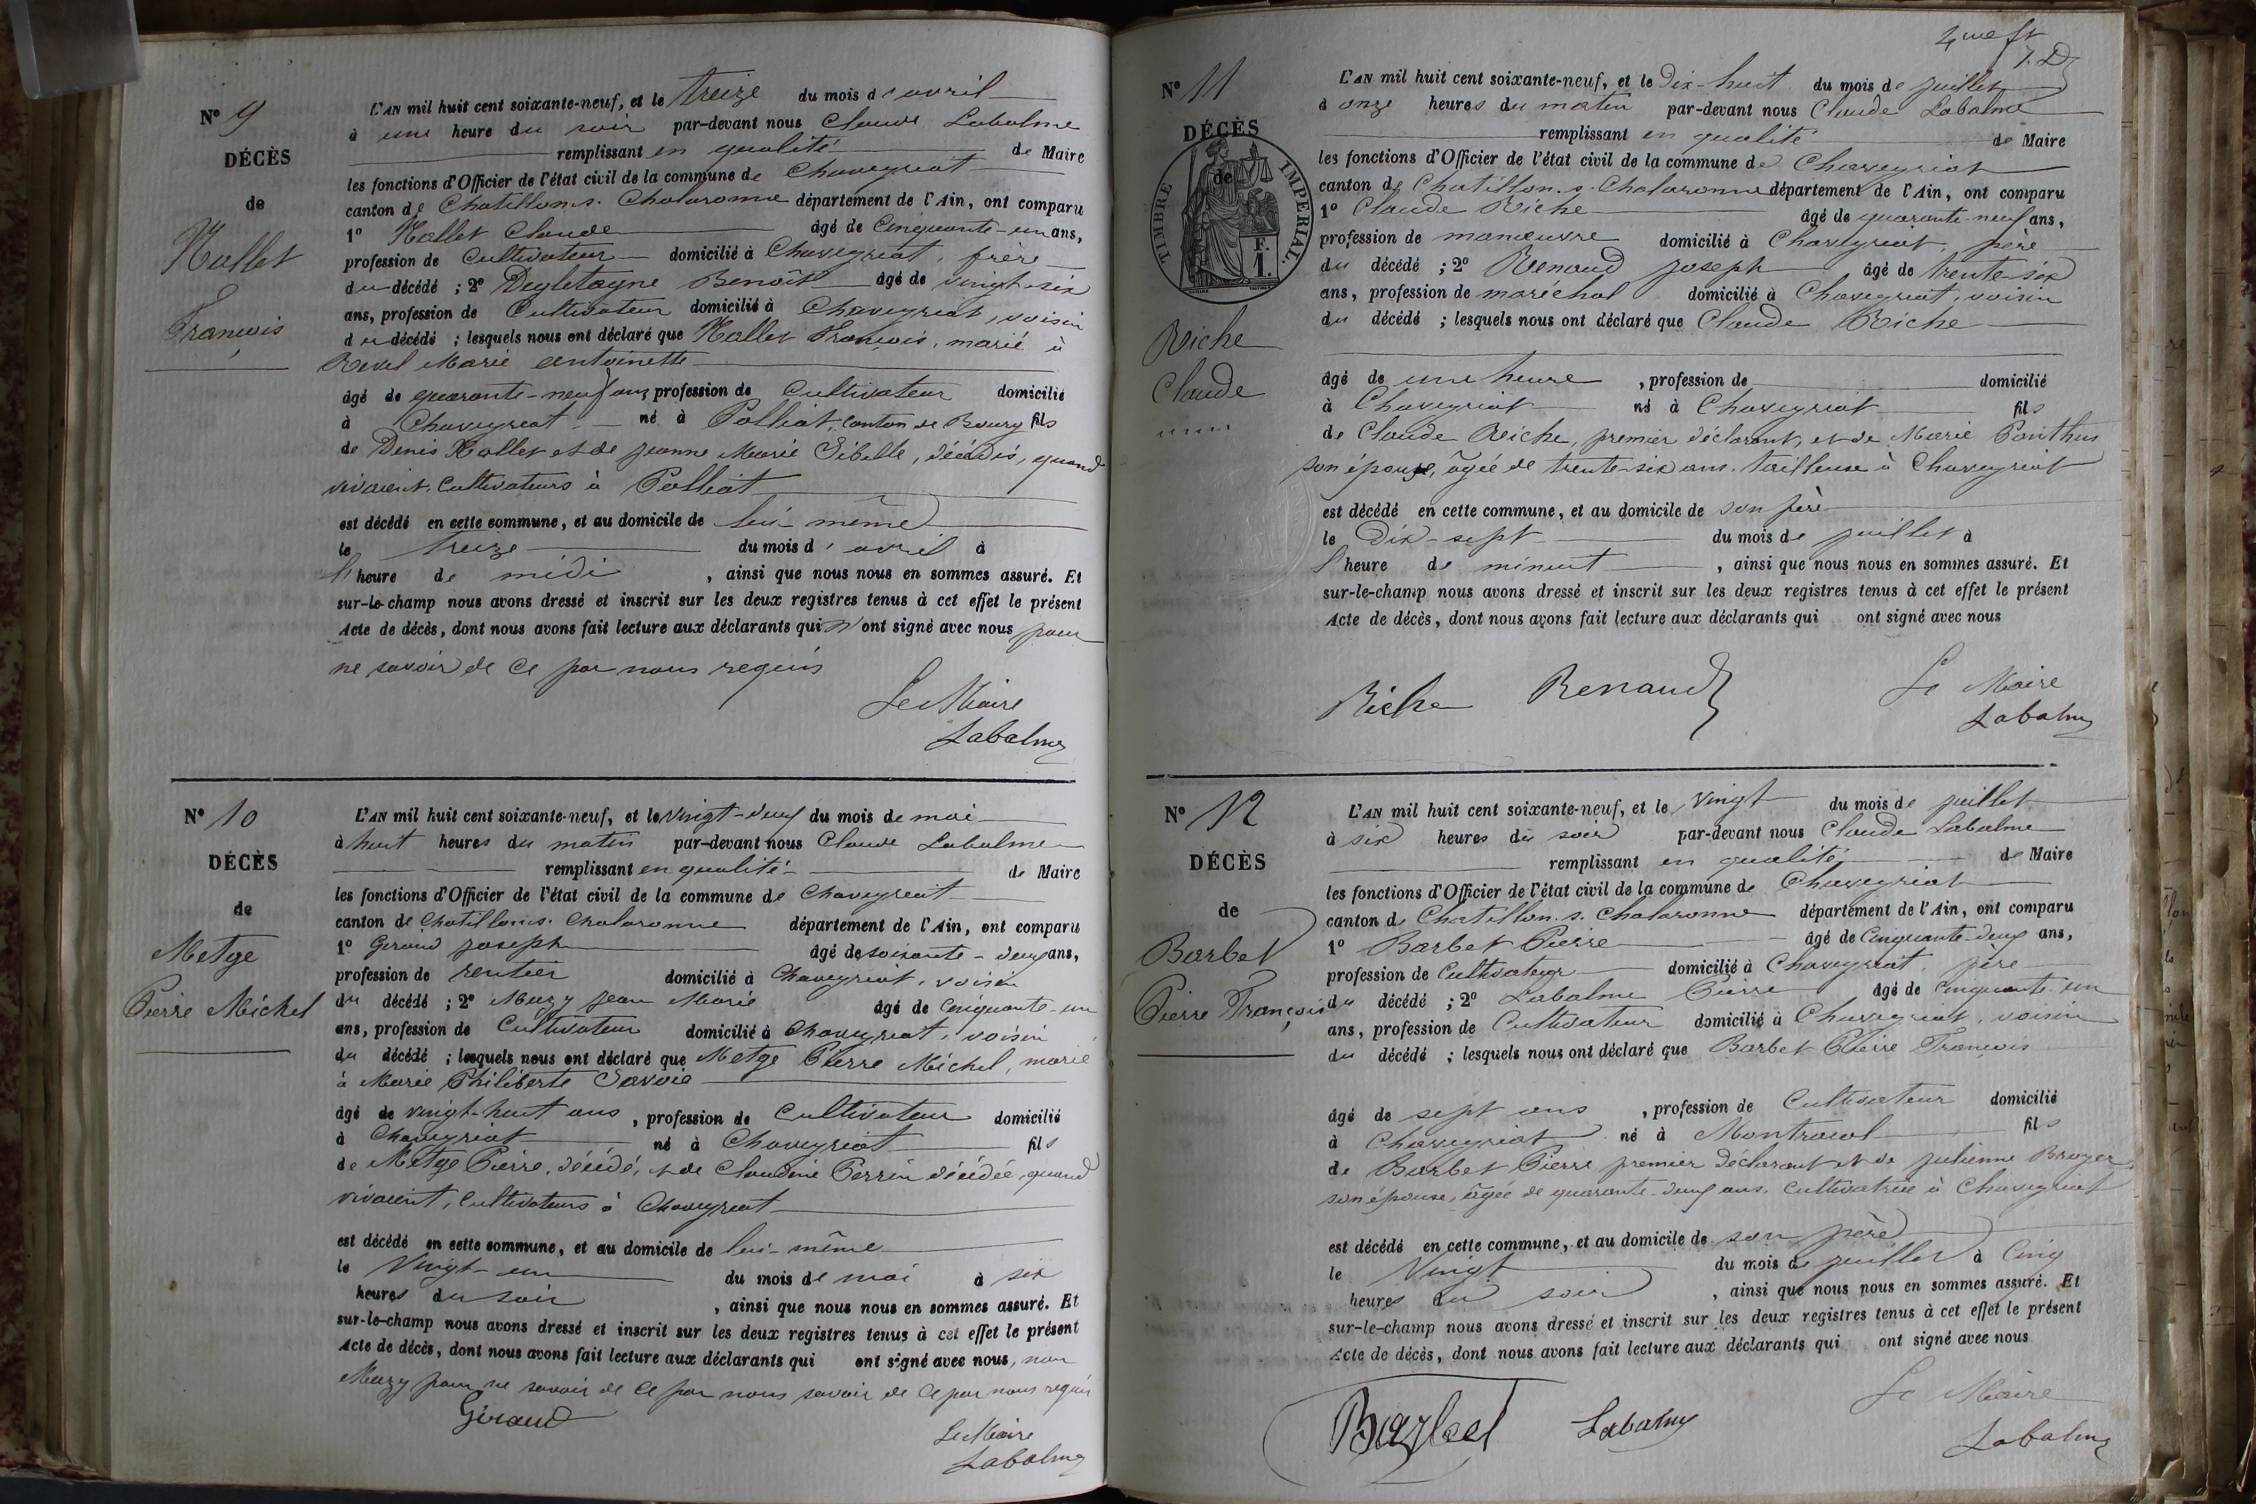 N° 9
DÉCÈS
de
Hallet
François
L'AN mil huit cent soixante-neuf, et le treize du mois d'avril
à une heure du soir par-devant nous Claude Labalme
remplissant en qualité de Maire
les fonctions d'Officier de l'état civil de la commune de Chaveyriat
canton de Chatillon s. Chalaronne département de l'Ain, ont comparu
1° Hallet Claude âgé de Cinquante-un ans,
profession de Cultivateur domicilié à Chaveyriat, frère
du décédé ; 2° Degletagne Benoît âgé de vingt-six
ans, profession de Cultivateur domicilié à Chaveyriat, voisin
du décédé ; lesquels nous ont déclaré que Hallet François, marié à
Revel Marie Antoinette
âgé de quarante-neuf ans profession de Cultivateur domicilié
à Chaveyriat né à Polliat, canton de Bourg fils
de Denis Hallet et de Jeanne Marie Sibelle, décédés, quand
vivaient, Cultivateurs à Polliat
est décédé en cette commune, et au domicile de lui même
le treize du mois d'avril à
l'heure de midi , ainsi que nous nous en sommes assuré. Et
sur-le-champ nous avons dressé et inscrit sur les deux registres tenus à cet effet le présent
Acte de décès, dont nous avons fait lecture aux déclarants qui n'ont signé avec nous pour
ne savoir de ce par nous requis
Le Maire
Labalme
N° 10
DÉCÈS
de
Metge
Pierre Michel
L'AN mil huit cent soixante-neuf, et le vingt-deux du mois de mai
à huit heures du matin par-devant nous Claude Labalme
remplissant en qualité de Maire
les fonctions d'Officier de l'état civil de la commune de Chaveyriat
canton de Chatillon s. Chalaronne département de l'Ain, ont comparu
1° Giraud Joseph âgé de soixante-deux ans,
profession de rentier domicilié à Chaveyriat, voisin
du décédé ; 2° Mazy Jean Marie âgé de Cinquante-un
ans, profession de Cultivateur domicilié à Chaveyriat, voisin
du décédé ; lesquels nous ont déclaré que Metge Pierre Michel, marié
à Marie Philiberte Savoie
âgé de vingt-huit ans , profession de Cultivateur domicilié
à Chaveyriat né à Chaveyriat fils
de Metge Pierre, décédé, et de Claudine Perrin décédée, quand
vivaient, Cultivateurs à Chaveyriat
est décédé en cette commune, et au domicile de lui-même
le Vingt-un du mois de mai à six
heures du soir , ainsi que nous nous en sommes assuré. Et
sur-le-champ nous avons dressé et inscrit sur les deux registres tenus à cet effet le présent
Acte de décès, dont nous avons fait lecture aux déclarants qui ont signé avec nous, non
Mazy pour ne savoir de ce par nous savoir de ce par nous requis
Giraud
Le Maire
Labalme
N° 11
DÉCÈS
de
TIMBRE IMPERIAL.
F.
1.
Riche
Claude
L'AN mil huit cent soixante-neuf, et le Dix-huit du mois de juillet
à onze heures du matin par-devant nous Claude Labalme
remplissant en qualité de Maire
les fonctions d'Officier de l'état civil de la commune de Chaveyriat
canton de Chatillon. s. Chalaronne département de l'Ain, ont comparu
1° Claude Riche âgé de quarante-neuf ans,
profession de manœuvre domicilié à Chaveyriat, père
du décédé ; 2° Renaud Joseph âgé de trente-six
ans, profession de maréchal domicilié à Chaveyriat, voisin
du décédé ; lesquels nous ont déclaré que Claude Riche
âgé de une heure , profession de domicilié
à Chaveyriat né à Chaveyriat fils
de Claude Riche, premier déclarant, et de Marie Ponthus
son épouse, âgée de trente-six ans, tailleuse à Chaveyriat
est décédé en cette commune, et au domicile de son père
le Dix-sept du mois de juillet à
l'heure de minuit , ainsi que nous nous en sommes assuré. Et
sur-le-champ nous avons dressé et inscrit sur les deux registres tenus à cet effet le présent
Acte de décès, dont nous avons fait lecture aux déclarants qui ont signé avec nous
Riche Renaud
Le Maire
Labalme
N° 12
DÉCÈS
de
Barbet
Pierre François
L'AN mil huit cent soixante-neuf, et le Vingt du mois de juillet
à six heures du soir par-devant nous Claude Labalme
remplissant en qualité de Maire
les fonctions d'Officier de l'état civil de la commune de Chaveyriat
canton de Chatillon. s. Chalaronne département de l'Ain, ont comparu
1° Barbet Pierre âgé de Cinquante-deux ans,
profession de Cultivateur domicilié à Chaveyriat, père
du décédé ; 2° Labalme Pierre âgé de Cinquante-un
ans, profession de Cultivateur domicilié à Chaveyriat, voisin
du décédé ; lesquels nous ont déclaré que Barbet Pierre François
âgé de sept ans , profession de Cultivateur domicilié
à Chaveyriat né à Montracol fils
de Barbet Pierre premier déclarant et de Julienne Broyer
son épouse, âgée de quarante-deux ans, Cultivatrice à Chaveyriat
est décédé en cette commune, et au domicile de son père
le Vingt du mois de juillet à Cinq
heures du soir , ainsi que nous nous en sommes assuré. Et
sur-le-champ nous avons dressé et inscrit sur les deux registres tenus à cet effet le présent
Acte de décès, dont nous avons fait lecture aux déclarants qui ont signé avec nous
Barbet Labalme
Le Maire
Labalme